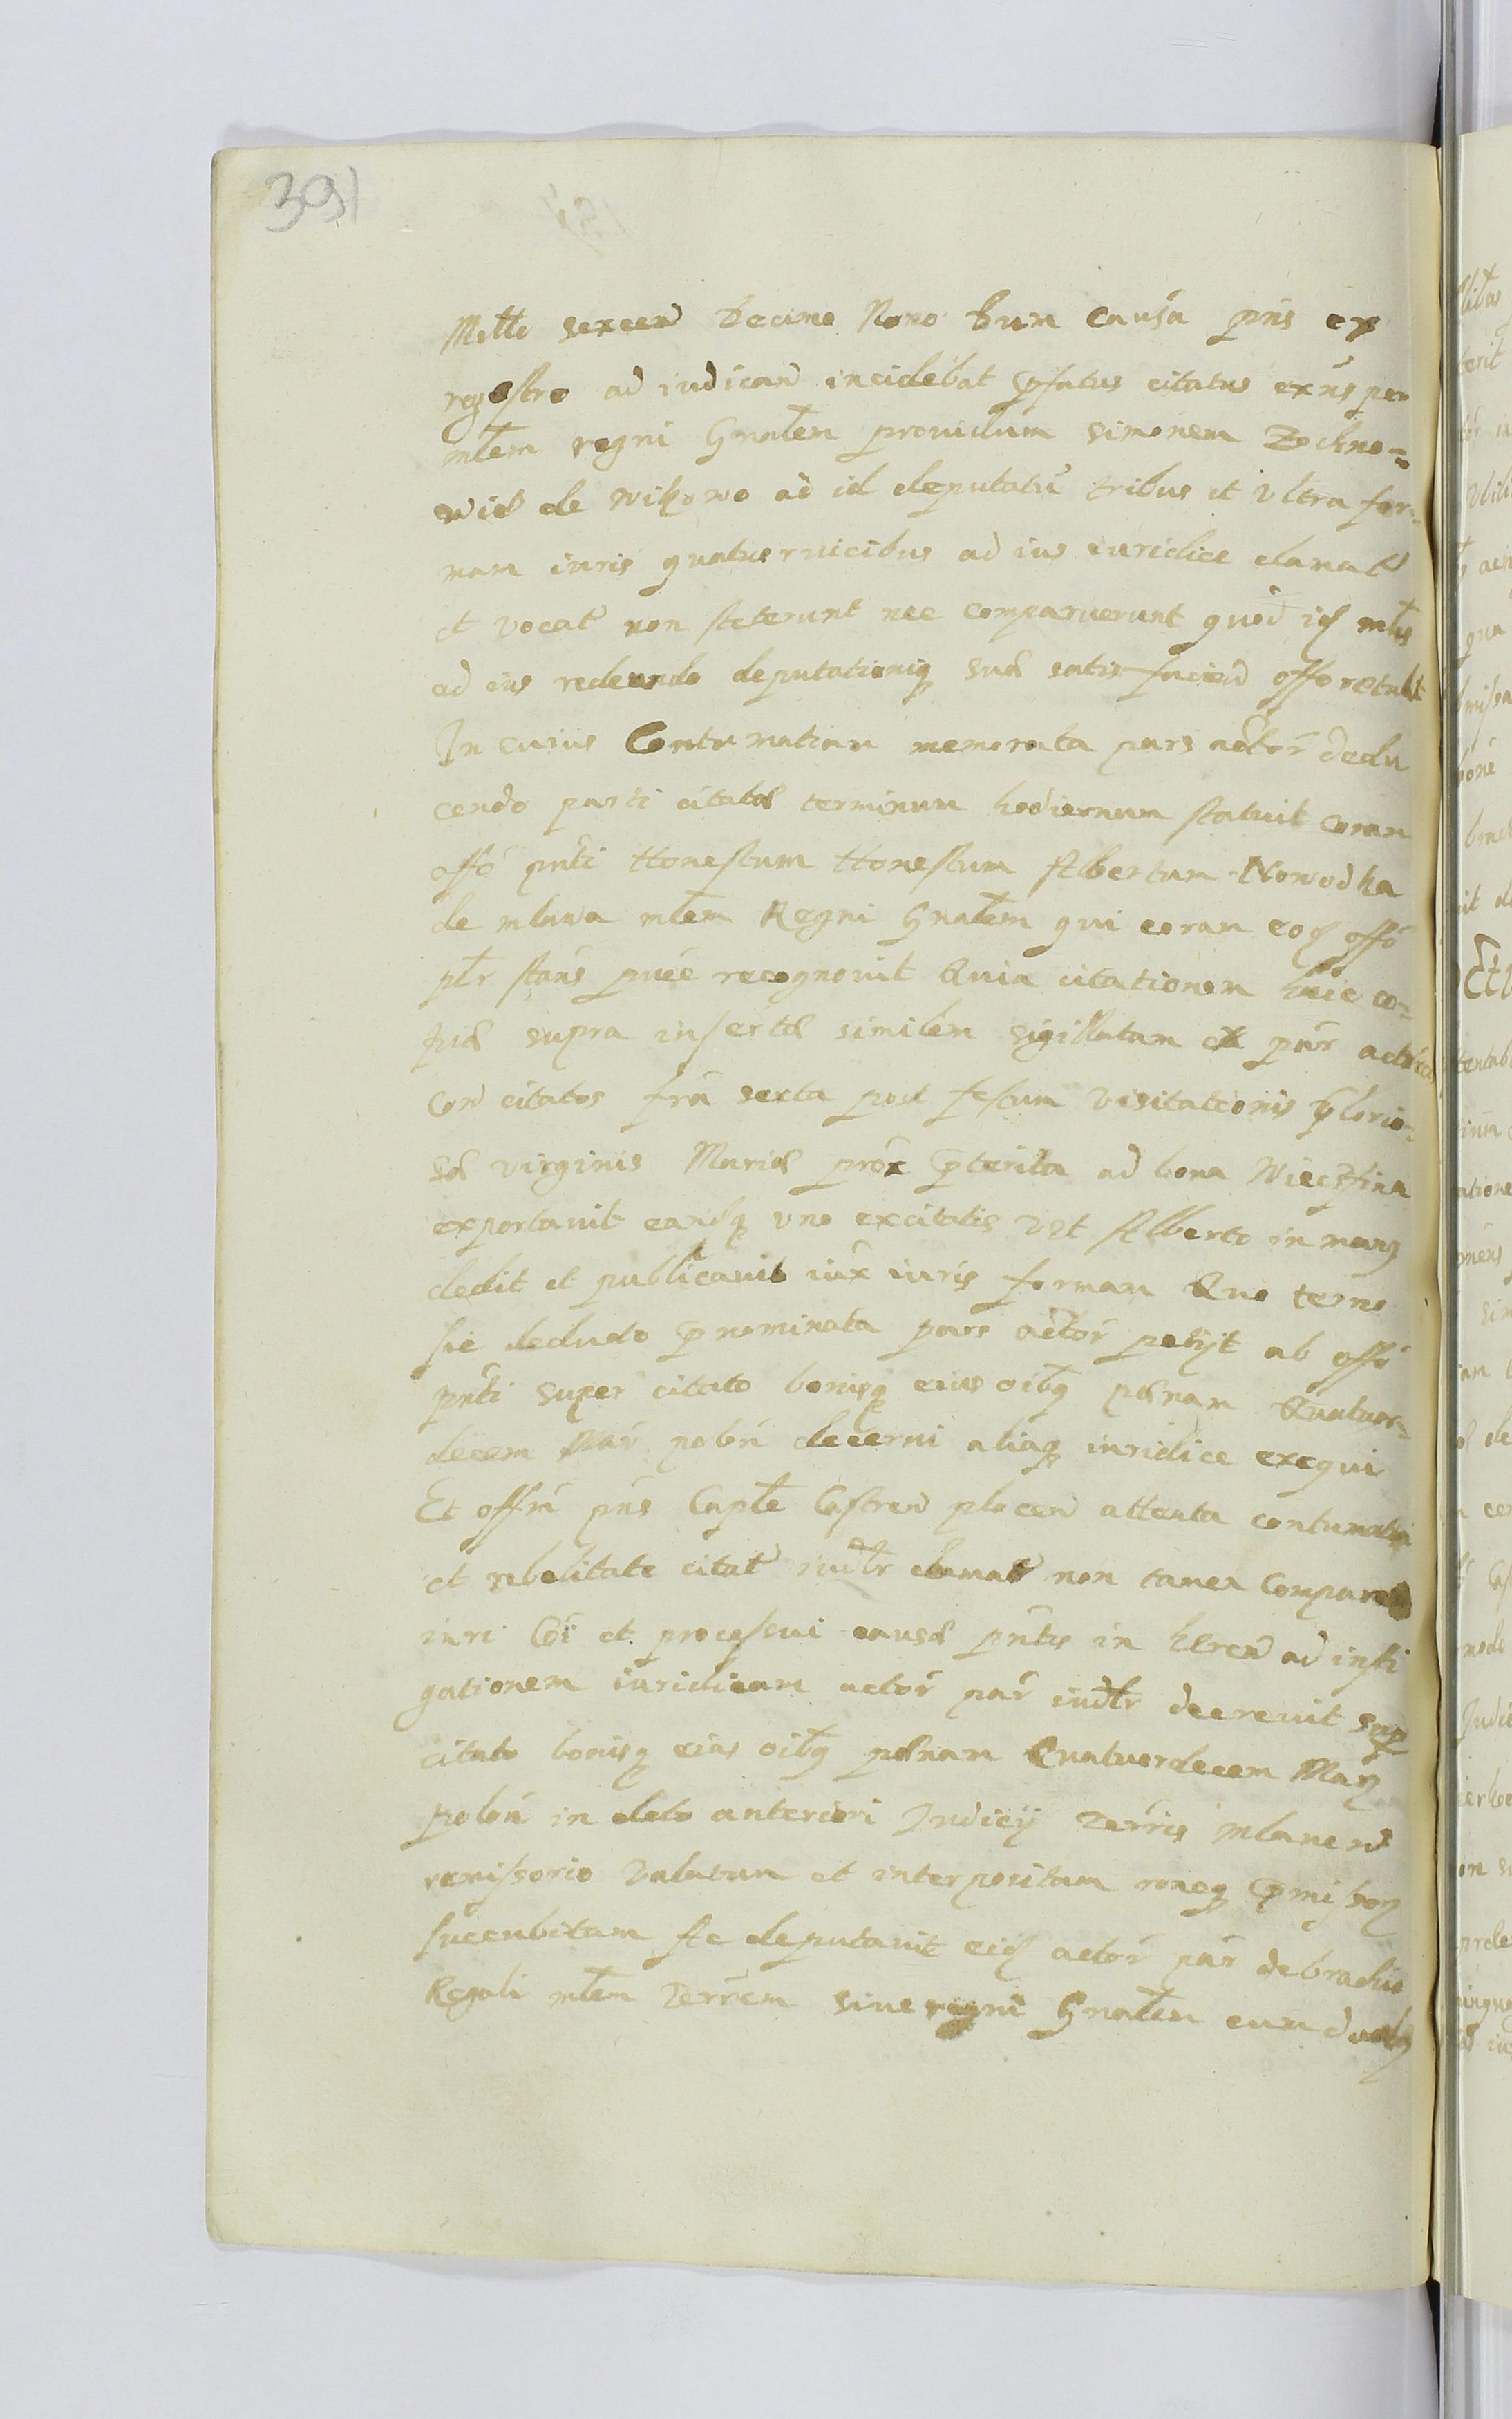 391
Mille sexcen decimo Nono Dum causa pñs ex
regestro ad iudican incidebat pfatus citatus exñs per
mlem regni Gnalem providum Simonem Zochno=
wic de Nizowo ad id deputatũ tribus et vltra for=
mam iuris quatuervicibus ad ius iuridice clamat
et vocat non steterunt nec comparuerunt quod id mlis
ad ius redeundo deputationiq suæ satisfaciend offo retulit
In cuius Contumatian memorata pars actor dedu
cendo parti citatæ terminum hodiernum statuit coram
offo pnti Honestum Honestum Albertum Nowodka
de mlawa mlem Regni Gnalem qui coram eod offo
plr stans pncè recognovit Quia citationem huic co=
piæ supra insertæ similem sigillatam ex par actricis
con citatos fra sexta post festum visitationis glorio=
sæ virginis Mariæ prox pterita ad bona Wieczfina
exportavit eandq uno excitatis vtt Alberto in marg
dedit et publicavit iux iuris forman Quo termo
sic deducto pnominata pars actor petijt ab offo
pnti super citato bonisq eius oibq pænam Quatuor=
decem Mar polon decerni aliaq iuridice exequi
Et offm pns Capte Castren plocen attenta contumatia
et rebelitate citat iudlr clamat non tamen comparen
iuri Coi et processui causæ pntis in hæren ad insti
gationem iuridicam actor par iudlr decrevit sup
citato bonisq eius oibq pænam Quatuordecem Marg
polon in dcto anteriori Judicij Terris mlauen
remissorio valatum et interpositam roneq pmissor
succubitam Ac deputavit eid actor par debrachio
Regali mlem Terrem sive regni Gnalem cum duobq